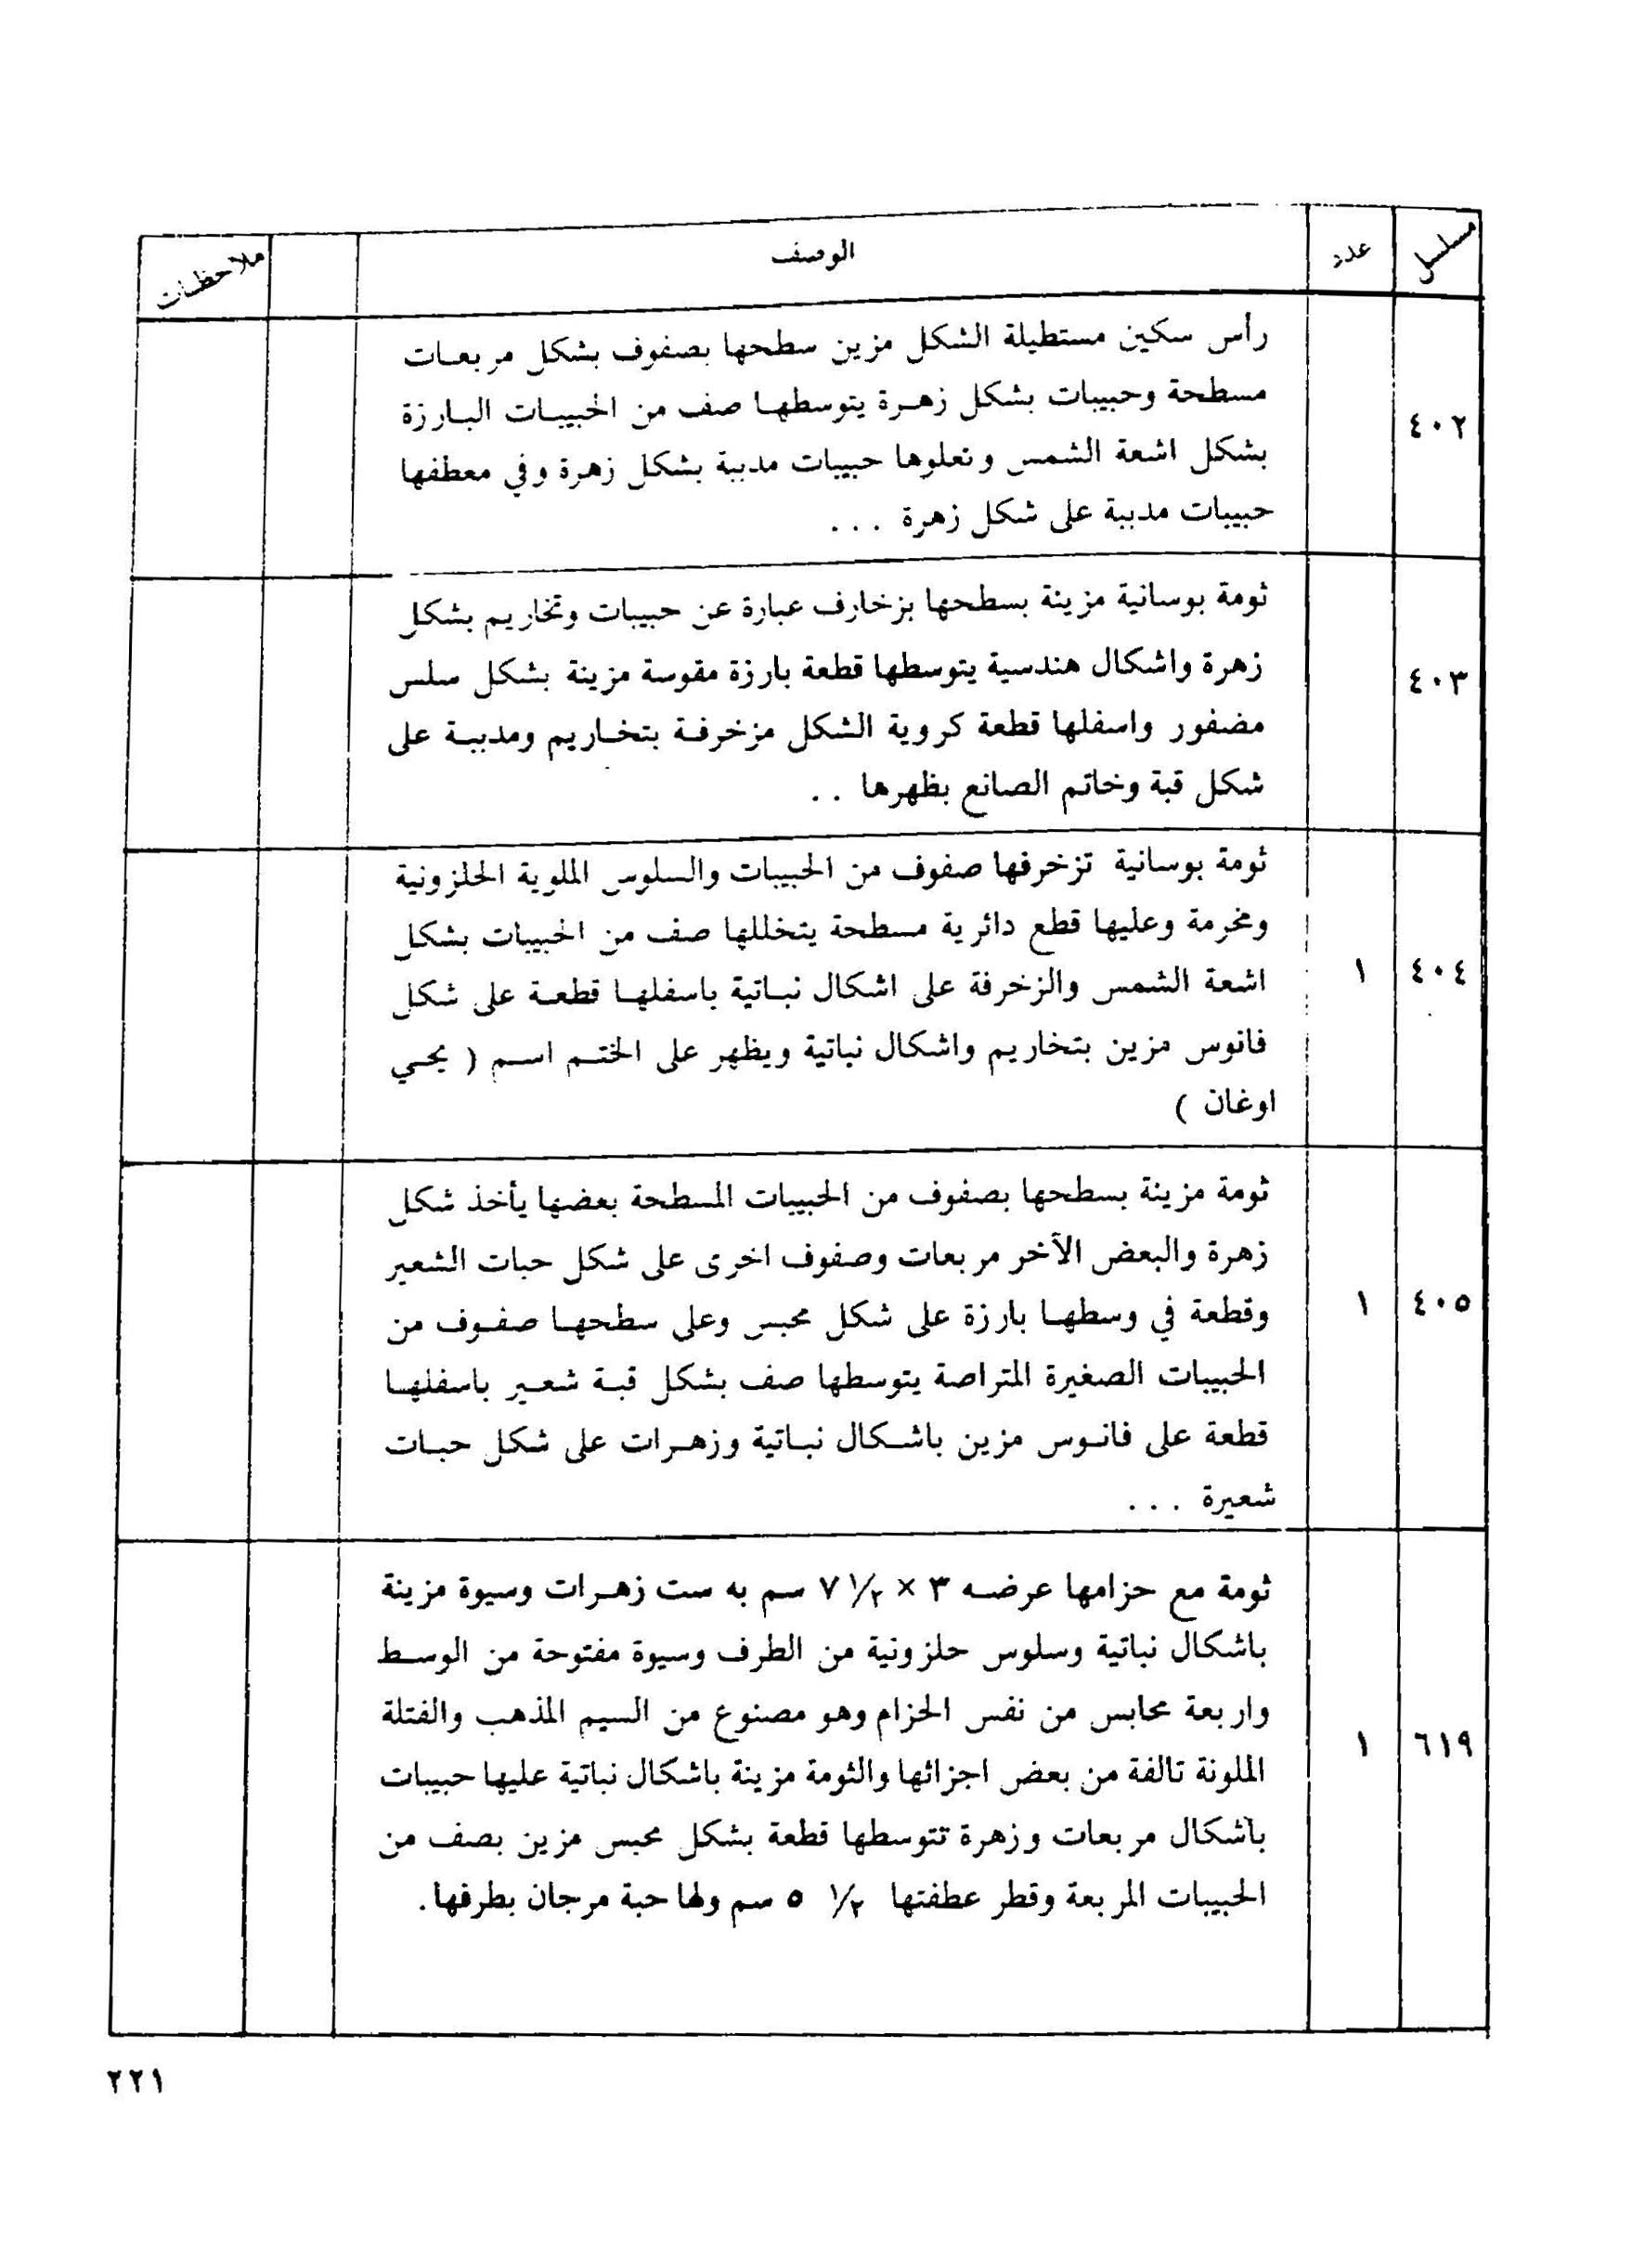 مسلسل عدد الوصف ملاحظات
رأس سكين مستطيلة الشكل مزين سطحها بصفوف بشكل مربعات
مسطحة وحبيبات بشكل زهرة يتوسطها صف من الحبيبات البارزة
٤٠٢
بشكل اشعة الشمس وتعلوها حبيبات مدببة بشكل زهرة وفي معطفها
حبيبات مدببة على شكل زهرة ...
ثومة بوسانية مزينة بسطحها بزخارف عبارة عن حبيبات وتخاريم بشكل
٤٠٣ زهرة واشكال هندسية يتوسطها قطعة بارزة مقوسة مزينة بشكل سلس
مضفور واسفلها قطعة كروية الشكل مزخرفة بتخاريم ومدببة على
شكل قبة وخاتم الصانع بظهرها ..
ثومة بوسانية تزخرفها صفوف من الحبيبات والسلوس الملوية الحلزونية
ومخرمة وعليها قطع دائرية مسطحة يتخللها صف من الحبيبات بشكل
٤٠٤ ١ اشعة الشمس والزخرفة على اشكال نباتية باسفلها قطعة على شكل
فانوس مزين بتخاريم واشكال نباتية ويظهر على الختم اسم ( يحي
اوغان )
ثومة مزينة بسطحها بصفوف من الحبيبات المسطحة بعضها يأخذ شكل
زهرة والبعض الآخر مربعات وصفوف اخرى على شكل حبات الشعير
٤٠٥ ١ وقطعة في وسطها بارزة على شكل محبس وعلى سطحها صفوف من
الحبيبات الصغيرة المتراصة يتوسطها صف بشكل قبة شعير باسفلها
قطعة على فانوس مزين باشكال نباتية وزهرات على شكل حبات
شعيرة ...
ثومة مع حزامها عرضه ٣ × ١/٢ ٧ سم به ست زهرات وسيوة مزينة
باشكال نباتية وسلوس حلزونية من الطرف وسيوة مفتوحة من الوسط
واربعة محابس من نفس الحزام وهو مصنوع من السيم المذهب والفتلة
٦١٩ ١ الملونة تالفة من بعض اجزائها والثومة مزينة باشكال نباتية عليها حبيبات
باشكال مربعات وزهرة تتوسطها قطعة بشكل محبس مزين بصف من
الحبيبات المربعة وقطر عطفتها ١/٢ ٥ سم ولها حبة مرجان بطرفها.
٢٢١